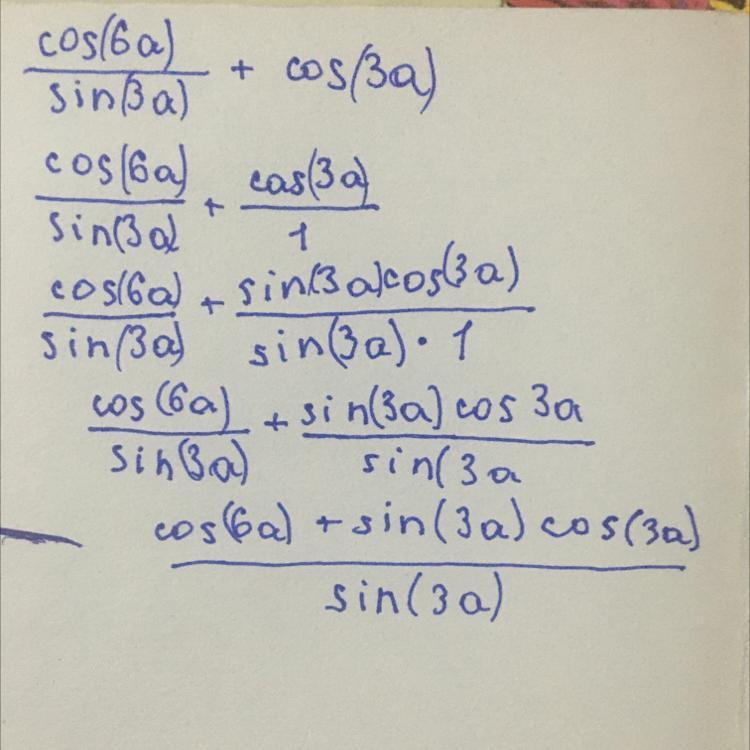 cos(6a)/sin(3a) + cos(3a)
cos(6a)/sin(3a) + cos(3a)/1
cos(6a)/sin(3a) + sin(3a)cos(3a)/sin(3a)·1
cos(6a)/sin(3a) + sin(3a) cos 3a/sin(3a
cos(6a) + sin(3a) cos(3a)/sin(3a)